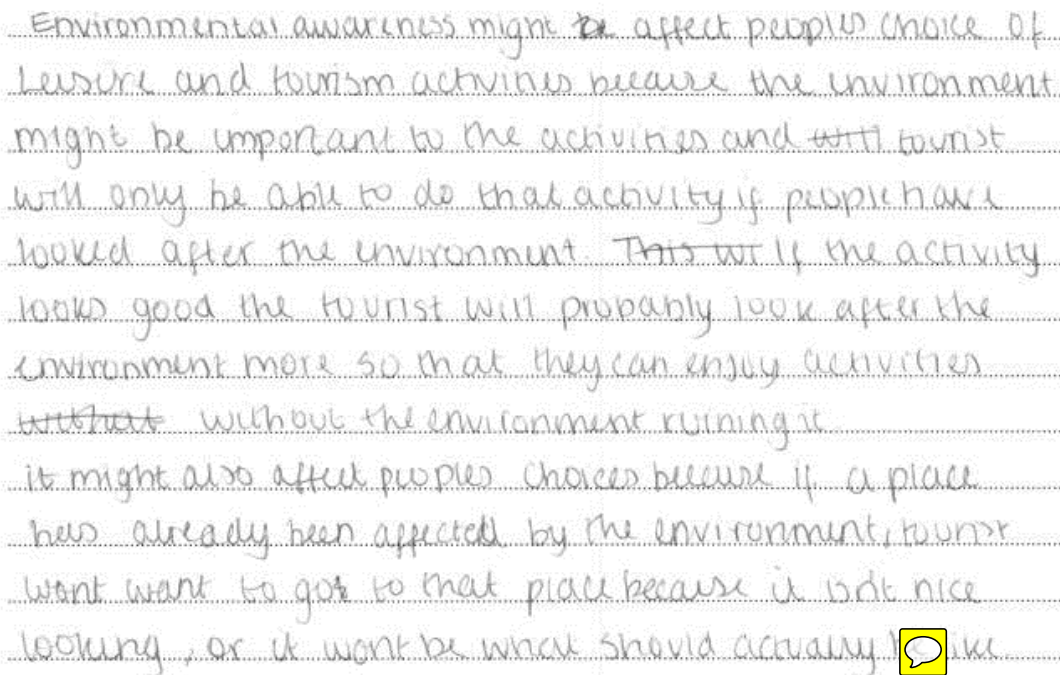 Environmental awareness might affect peoples choice of
Leisure and tourism activities because the environment
might be important to the activities and will tourist
will only be able to do that activity if people have
looked after the environment. This wi If the activity
looks good the tourist will probably look after the
environment more so that they can enjoy activities
without the environment ruining it
it might also affect peoples choices because if a place
has already been affected by the environment, tourist
wont want to go to that place because it isnt nice
looking, or it wont be what should actually like.